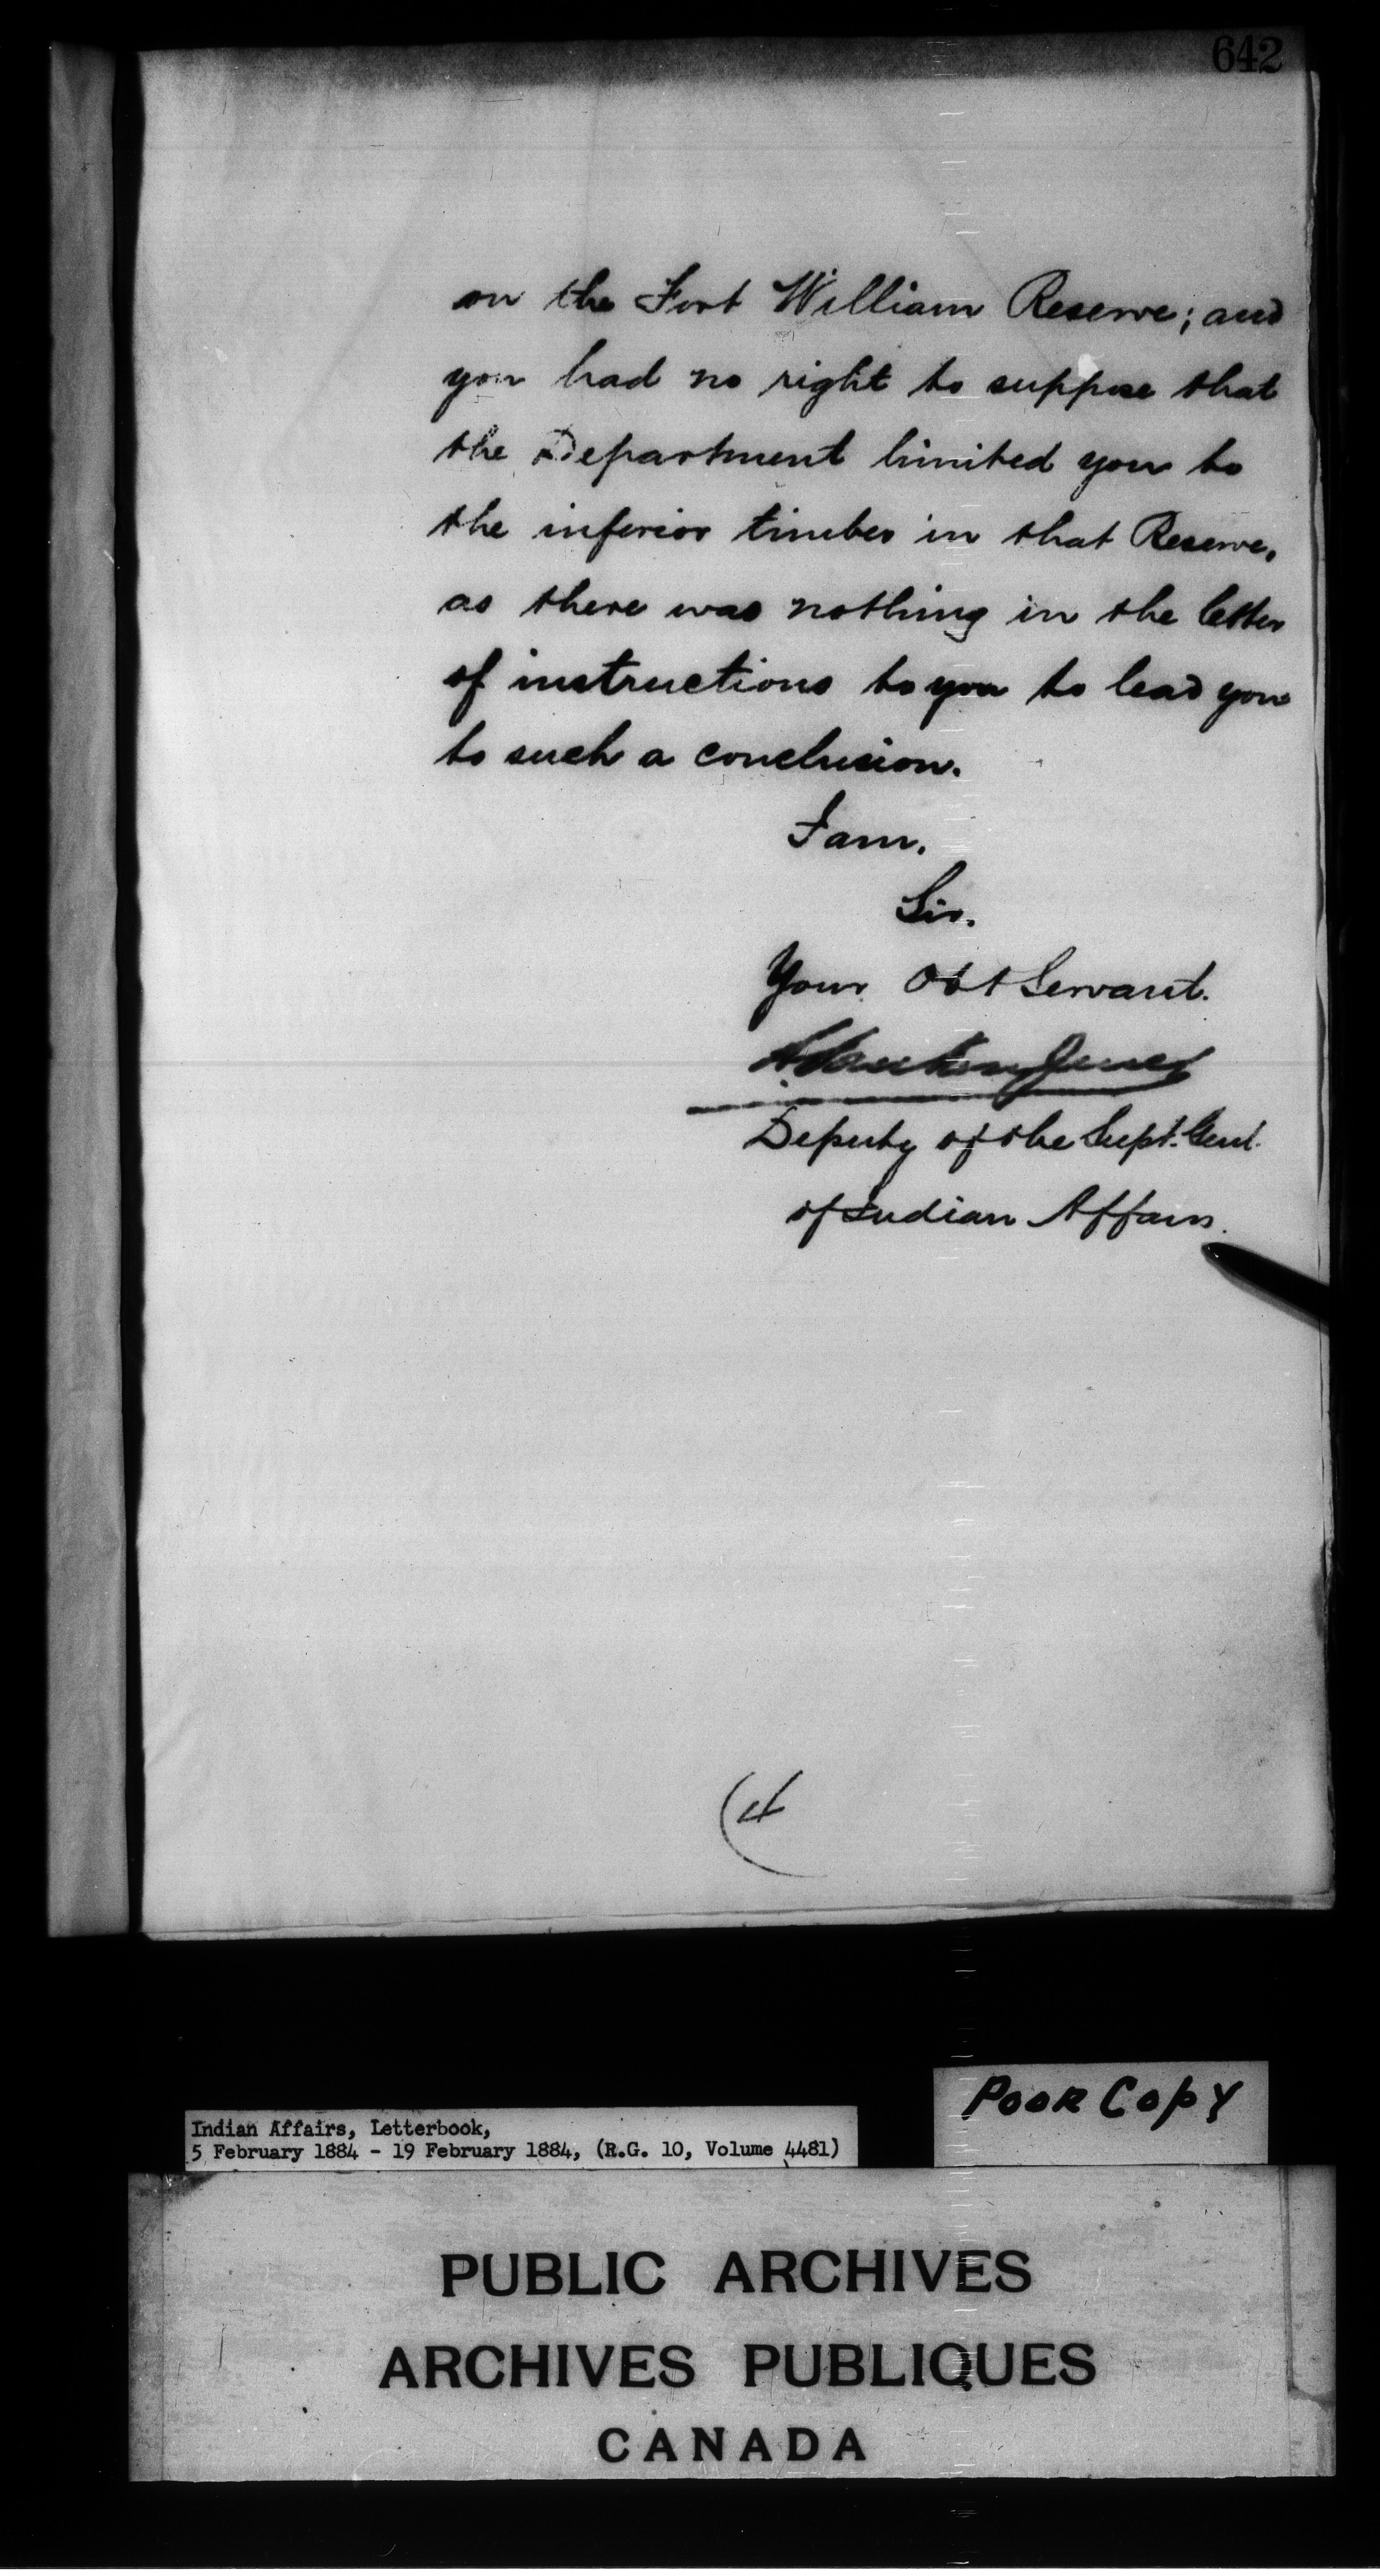 642
on the Fort William Reserve; and
you had no right to suppose that
the Department limited you to
the inferior timber in that Reserve,
as there was nothing in the letter
of instructions to you to lead you
to such a conclusion.
I am.
Sir.
Your Obt Servant.
Deputy of the Supt. Genl.
of Indian Affairs.
(4
Poor Copy
Indian Affairs, Letterbook,
5 February 1884 - 19 February 1884, (R.G. 10, Volume 4481)
PUBLIC ARCHIVES
ARCHIVES PUBLIQUES
CANADA